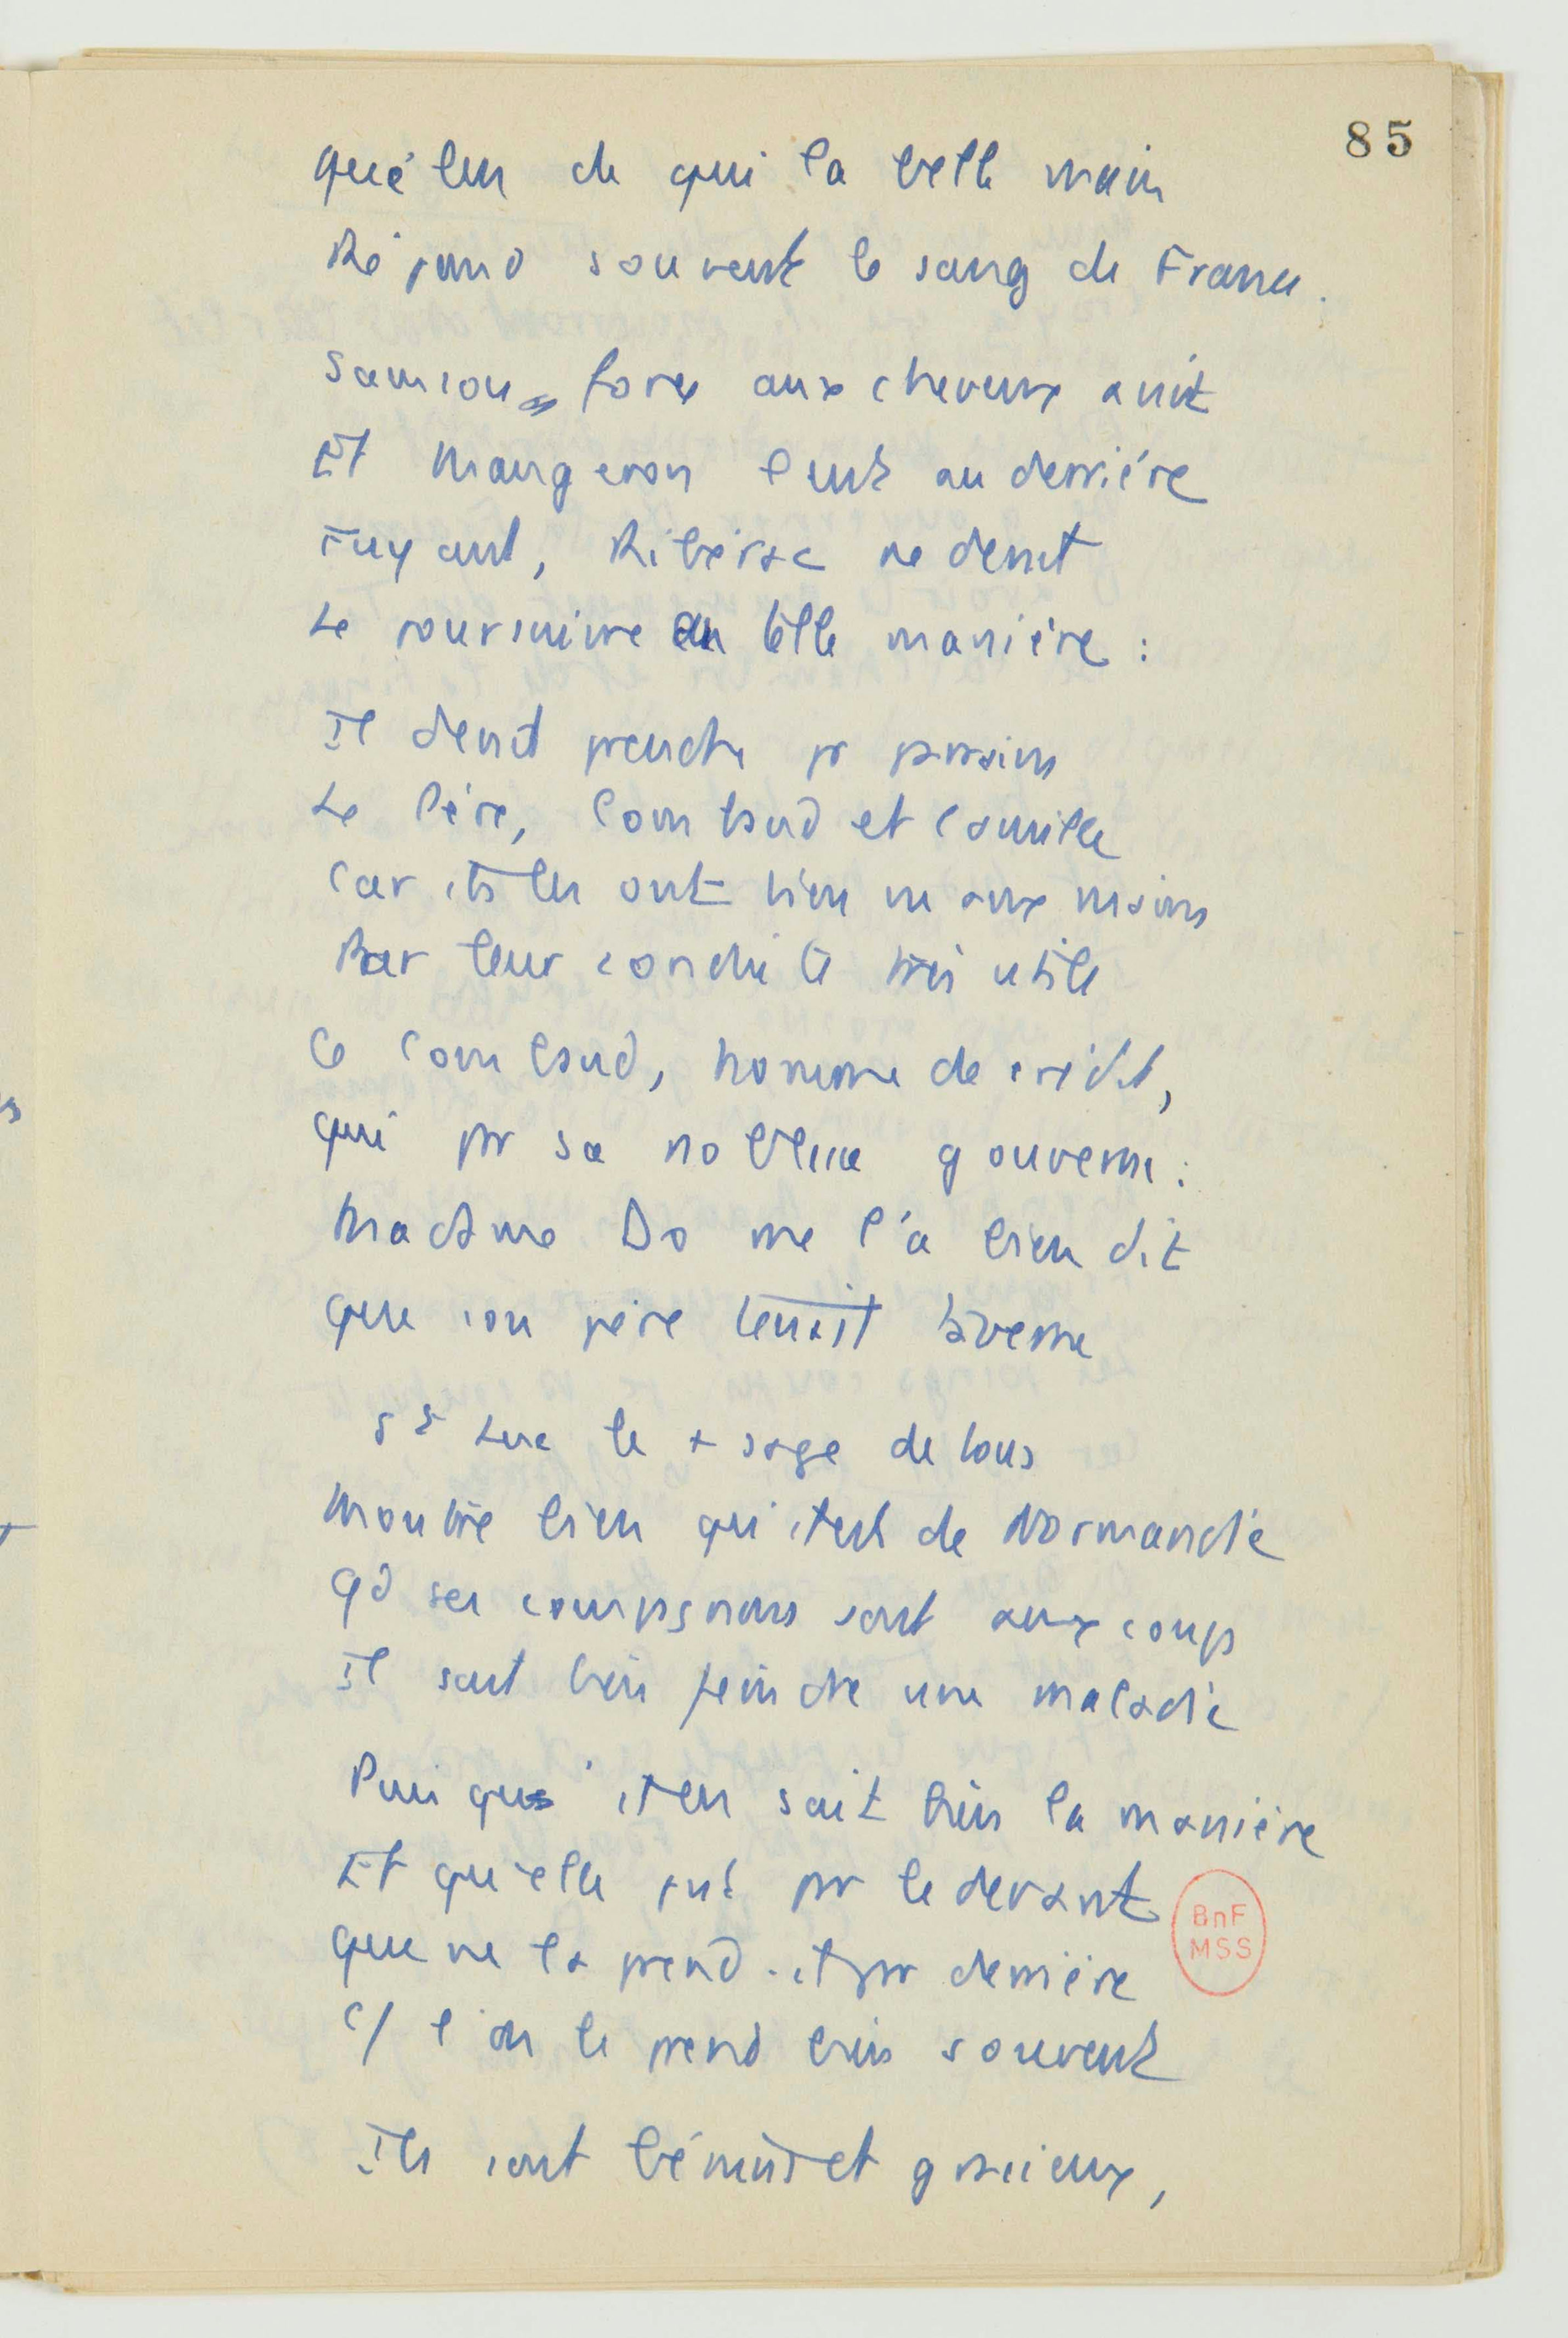 85
Qu'elu de qui la belle main
Répand souvent le sang de France.
Samson sa force aux cheveux avait
Et Maugeron l'eut au derrière
Fuyant, Ribérac ne devait
Le poursuivre en telle manière :
Il devait prendre pr parrains
Le Père, Combaud et Camille
Car ils les ont bien vu aux mains
Par leur conduite très utile
Ce Combaud, homme de crédit,
qui pr sa noblesse gouverne :
Madame Do me l'a bien dit
que son père tenait taverne
St Luc le + sage de tous
Montre bien qu'il est de Normandie
Qd ses compagnons sont aux coups
Il sait bien feindre une maladie
Puisqu'il en sait bien la manière
Et qu'elle put pr le devant
que ne la prend-il pr derrière
c/ l'on le prend bien souvent
Ils sont bénins et gracieux,
BnF
MSS